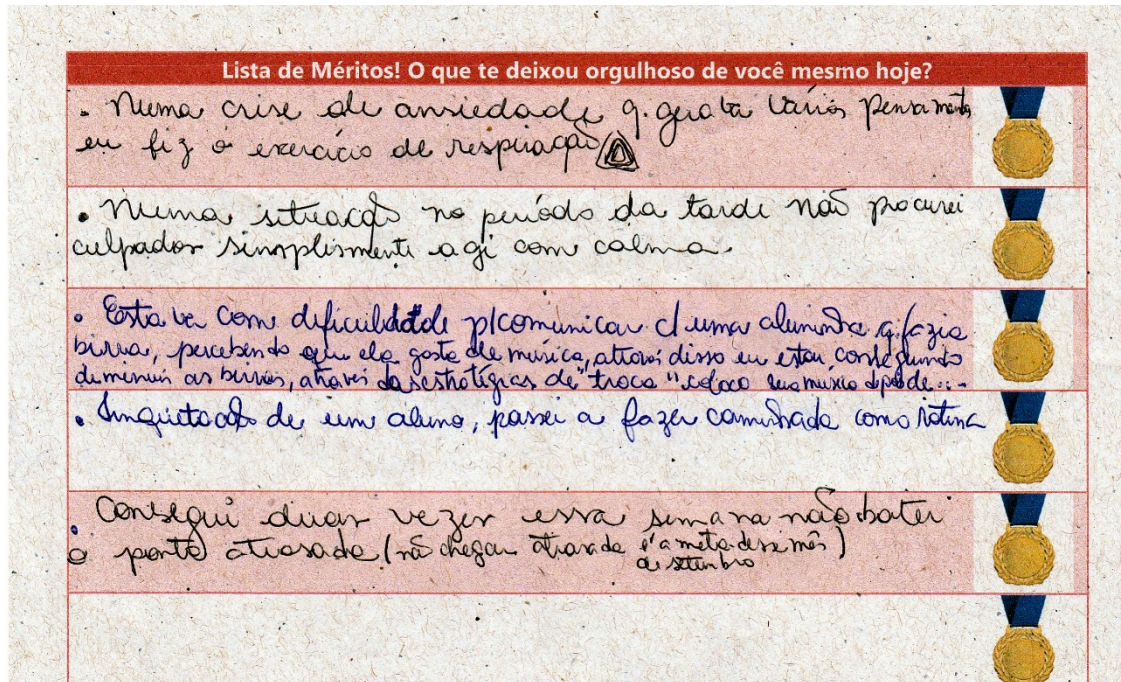 Lista de Méritos! O que te deixou orgulhoso de você mesmo hoje?
. Numa crise de ansiedade q. gerava vários pensamentos
eu fiz o exercício de respiração
. Numa situação no período da tarde não procurei
culpados simplismente agi com calma
. Estava com dificuldade p/comunicar c/ uma aluninha q. fazia
birra, percebendo que ela gosta de música, através disso eu estou conseguindo
demenuir as birras, através das estratégias de "troca" coloco sua música depois de ...
. Inquietação de um aluno, passei a fazer caminhada como rotina
. Consegui duas vezes essa semana não bater
o ponto atrasada (não chegar atrasada é a meta desse mês)
de setembro